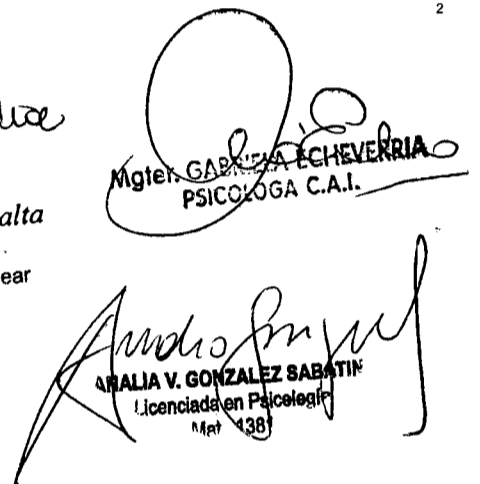 2
Mgter. GABRIELA ECHEVERRIA
PSICOLOGA C.A.I.
alta
ear
ANALIA V. GONZALEZ SABATIN
Licenciada en Psicología
Mat 138